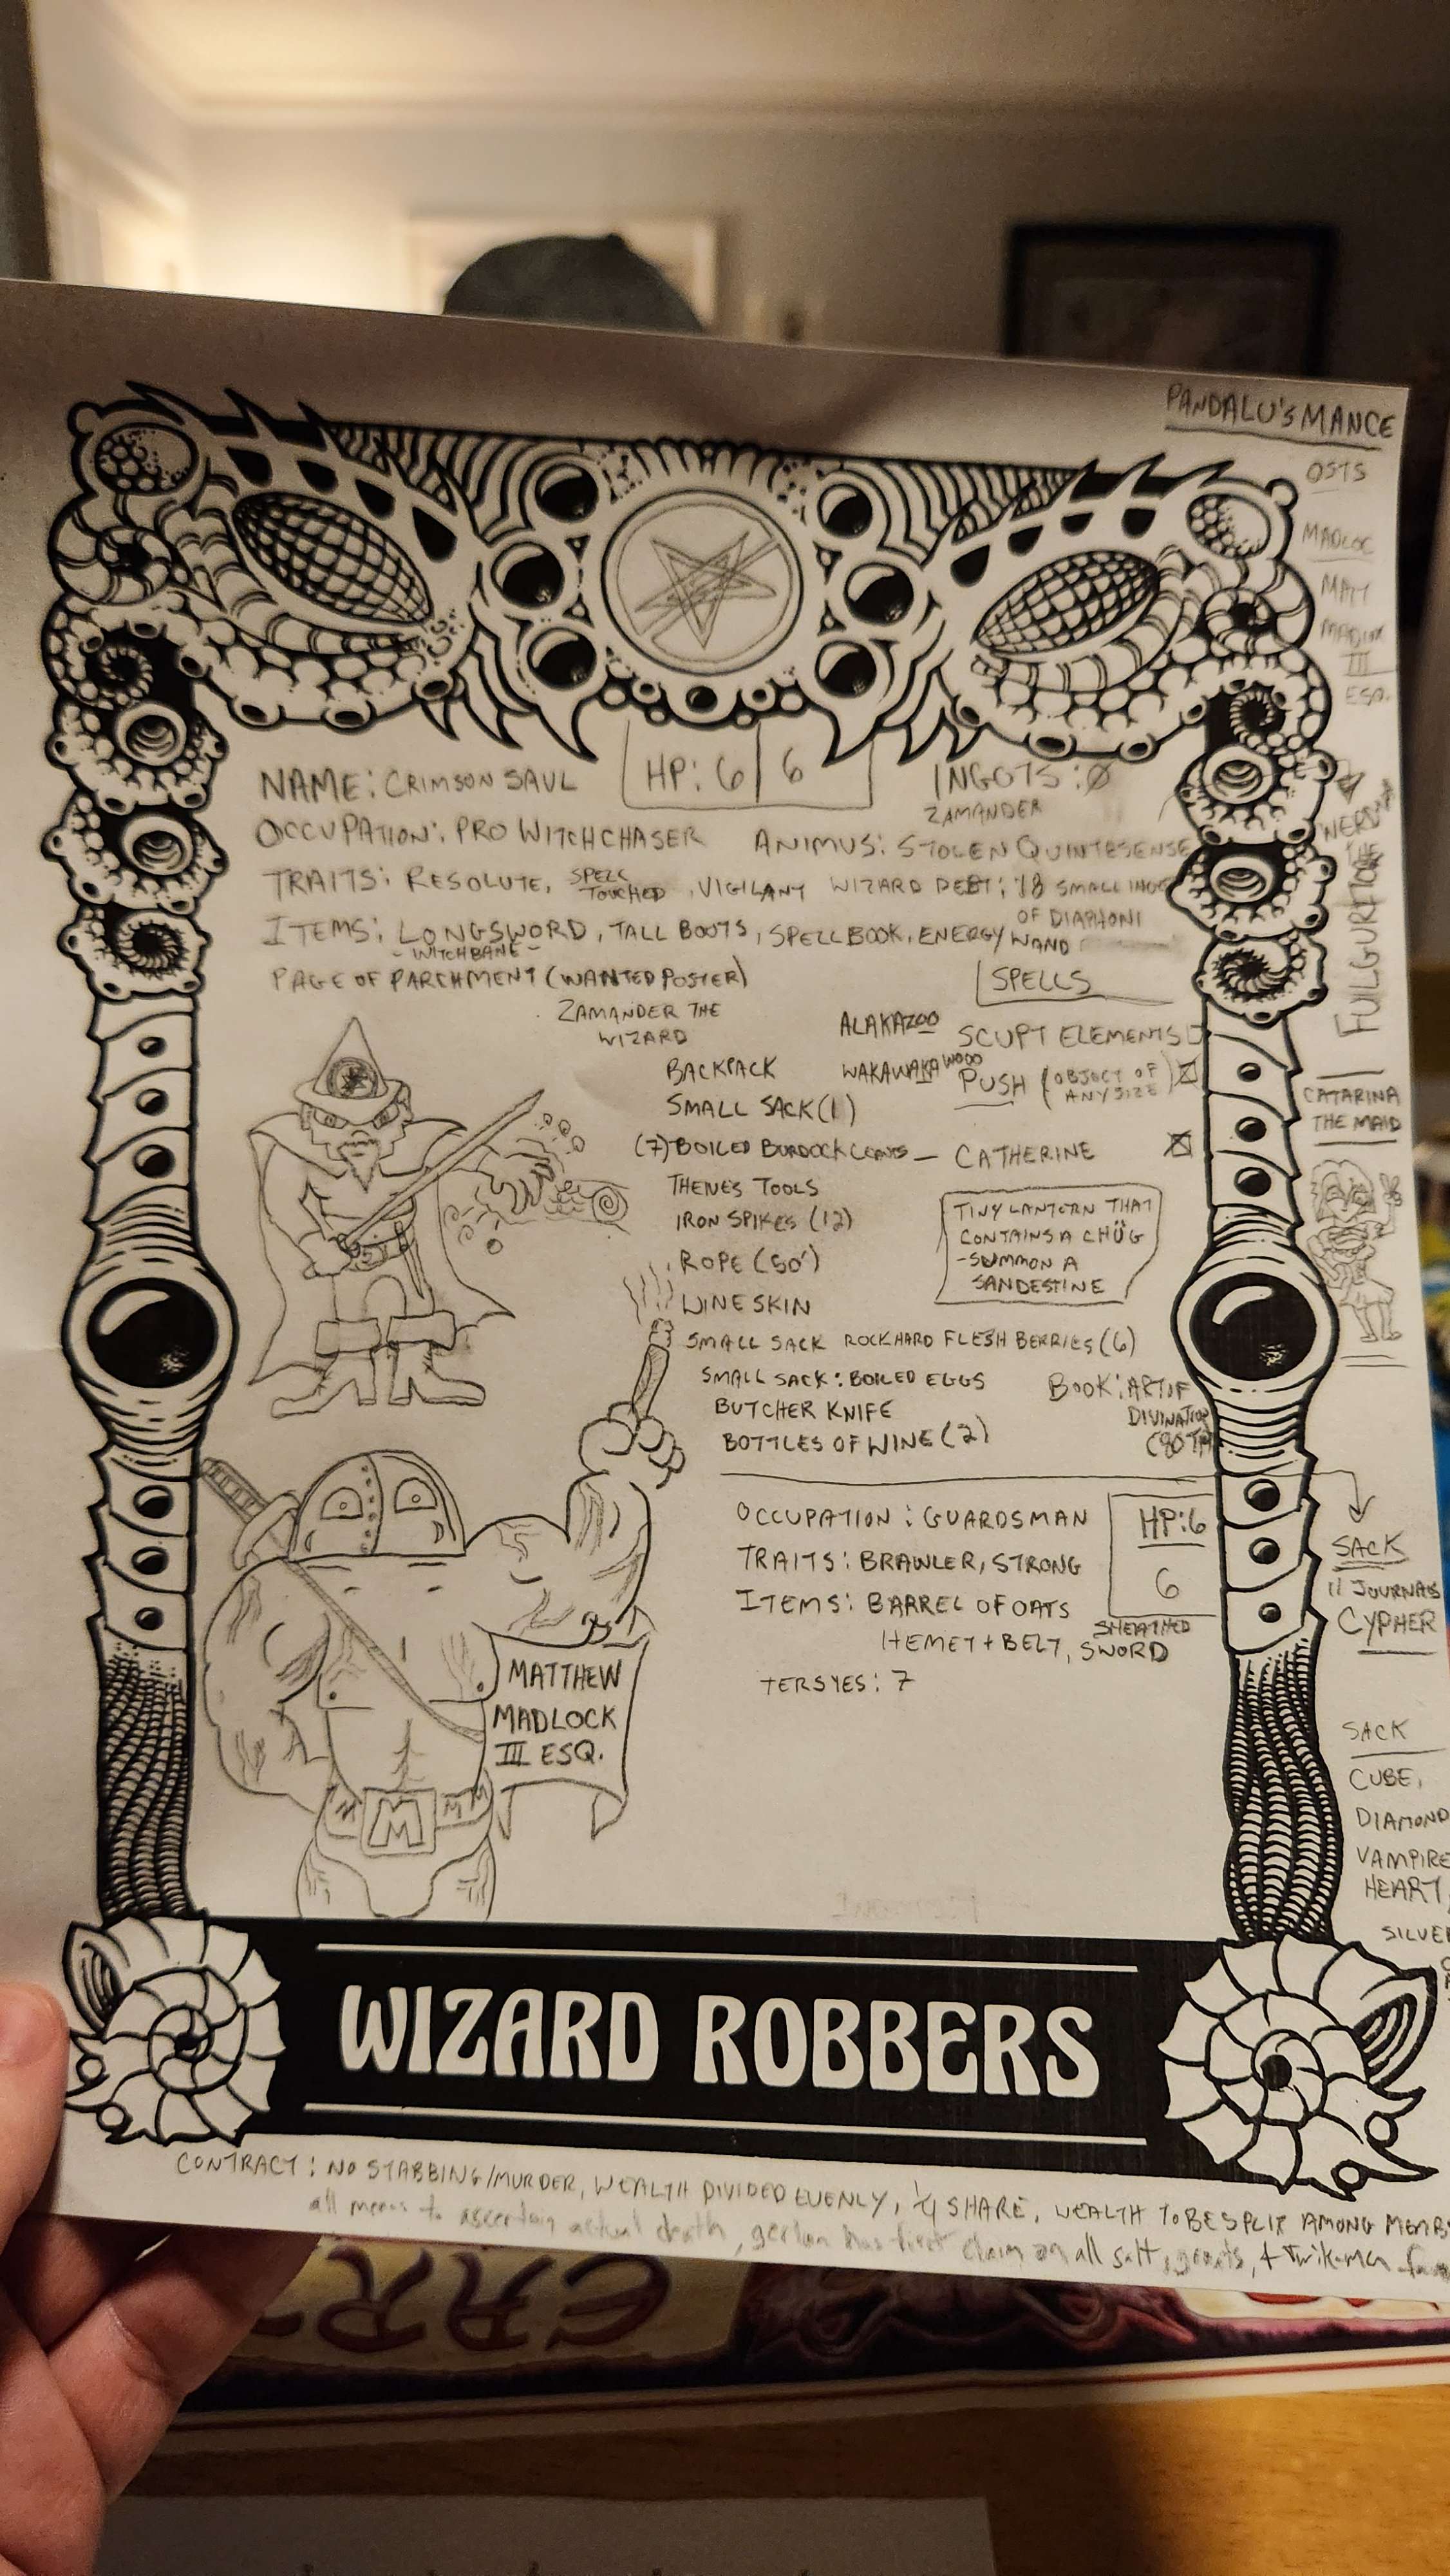 PANDALU'S MANCE
OSTS
MADLOC
MATT
III
ESQ.
NAME: CRIMSON SAUL
HP: 6 | 6
INGOTS: Ø
ZAMANDER
OCCUPATION: PRO WITCHCHASER
ANIMUS: STOLEN QUINTESENSE
TRAITS: RESOLUTE, SPELL TOUCHED, VIGILANT
WIZARD DEBT: 18 SMALL
OF DIAPHONI
ITEMS: LONGSWORD, TALL BOOTS, SPELLBOOK, ENERGY WAND
- WITCHBANE -
PAGE OF PARCHMENT (WANTED POSTER)
ZAMANDER THE
WIZARD
SPELLS
ALAKAZOO SCUPT ELEMENTS
WAKAWAKAWOOO PUSH (OBJECT OF
ANY SIZE)
CATHERINE
TINY LANTERN THAT
CONTAINS A CHÜG
-SUMMON A
SANDESTINE
BACKPACK
SMALL SACK (1)
(7) BOILED BURDOCK
TOOLS
IRON SPIKES (12)
ROPE (50')
WINESKIN
SMALL SACK ROCKHARD FLESH BERRIES (6)
SMALL SACK: BOILED EGGS
BUTCHER KNIFE
BOTTLES OF WINE (2)
BOOK: ART OF
DIVINATION
CATARINA
THE MAID
OCCUPATION: GUARDSMAN
TRAITS: BRAWLER, STRONG
ITEMS: BARREL OF OATS
HEMET + BELT, SHEATHED SWORD
TERSYES: 7
HP: 6
6
SACK
11 JOURNALS
CYPHER
SACK
CUBE,
DIAMOND
VAMPIRE
HEART,
MATTHEW
MADLOCK
III ESQ.
M
WIZARD ROBBERS
CONTRACT: NO STABBING/MURDER, WEALTH DIVIDED EVENLY, 1/4 SHARE, WEALTH TO BE SPLIT AMONG
all means to ascertain actual death, has first claim on all salt,